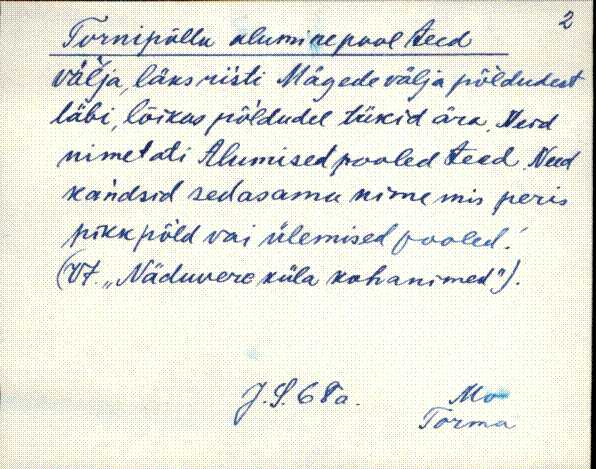 2
Tornipõllu alumine pool teed
välja, läks risti Mägede välja põldudest
läbi, lõikas põldudel tükid ära. Neid
nimetati Alumised pooled teed. Need
kandsid sedasama nime mis peris
pikk põld vai ülemised pooled!
(Vt. „Näduvere küla kohanimed").
J.S. 68a. Mo
Torma